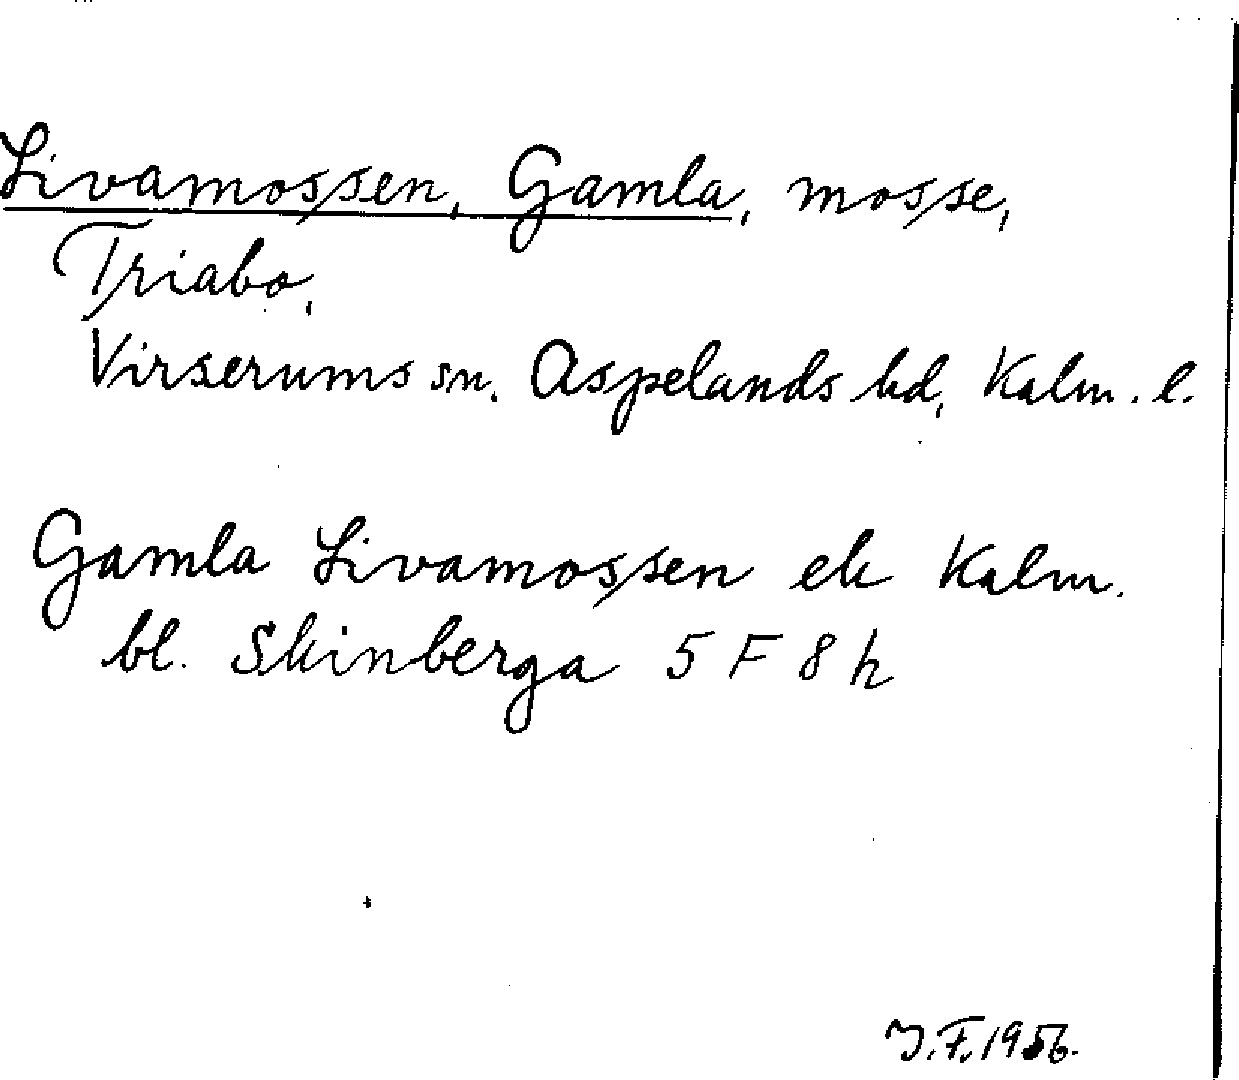 Livamossen, Gamla, mosse,
Triabo,
Virserums sn. Aspelands hd, Kalm. l.
Gamla Livamossen ek Kalm.
bl. Skinberga 5 F 8 h
J.F. 1956.